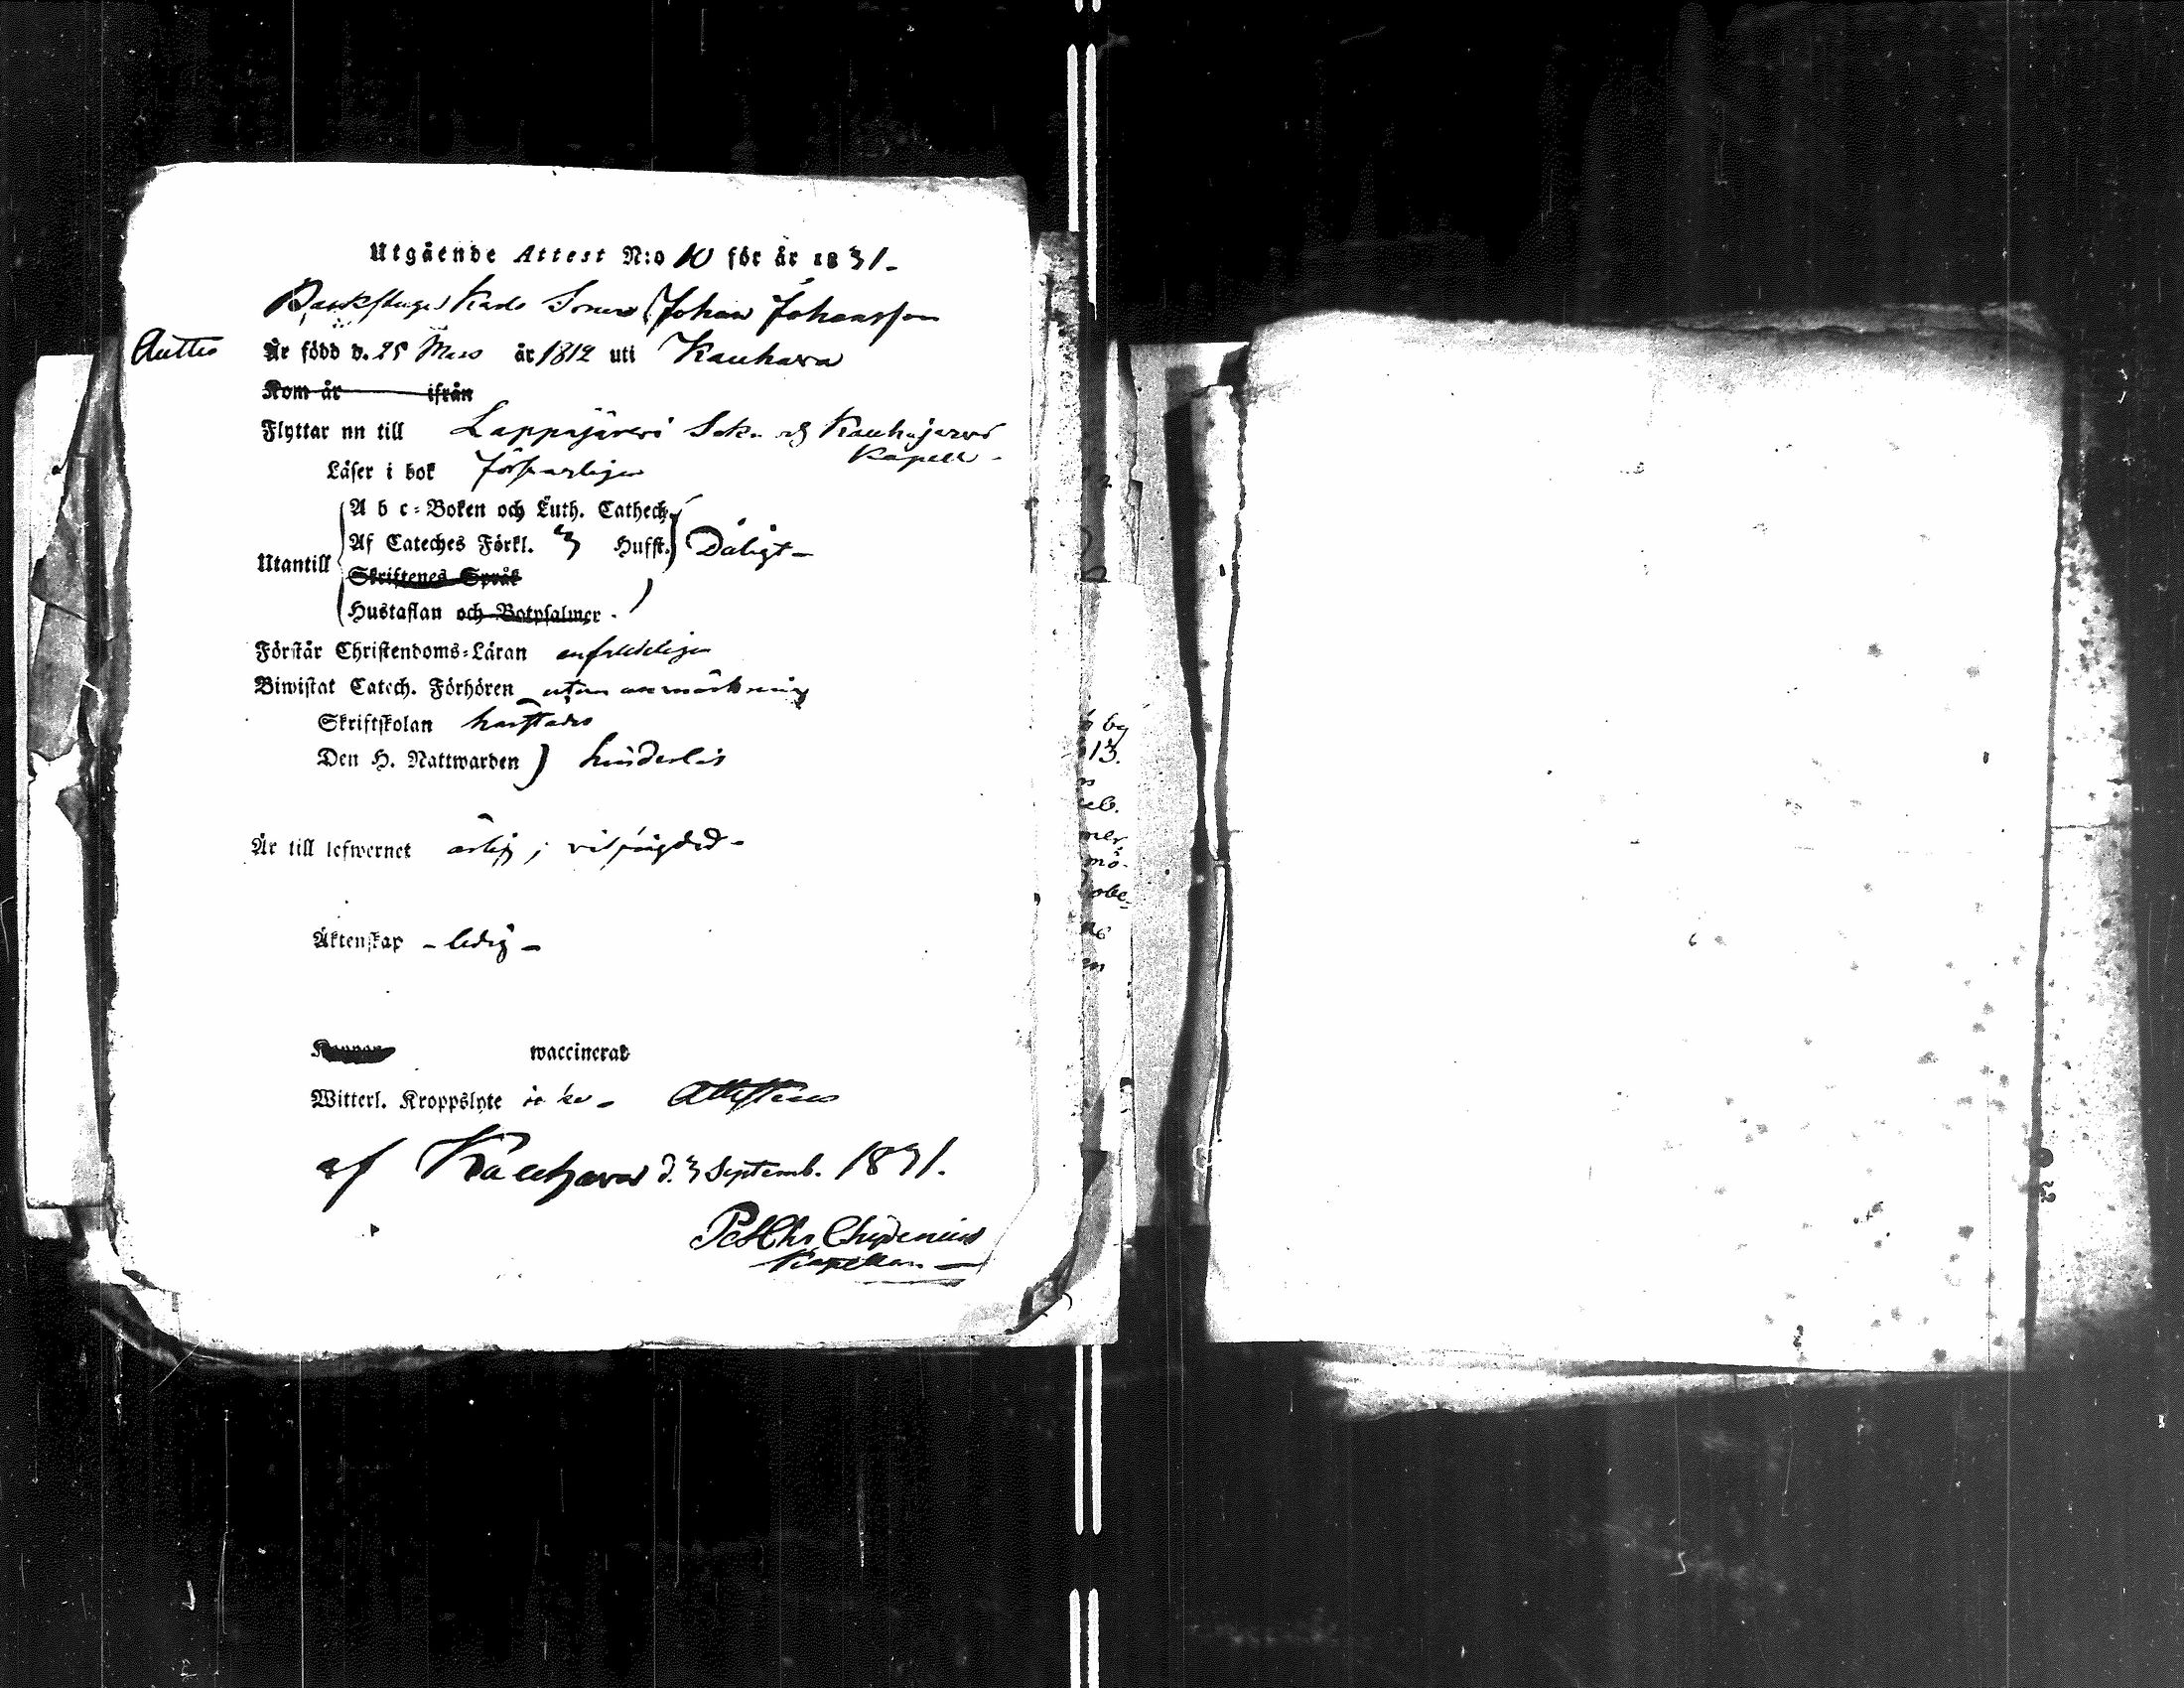 Utgående Attest N:o 10 för år 1831.
Johan Johansson
Är född d. 25 Mars år 1812 uti Kauhava
Kom år ifrån
Flyttar nn till Lappajärvi Sokn och Kauhajärvi
Kapell
Läser i bok försvarligen
A b c-Boken och Luth. Cathech.
Af Cateches Förkl. 3 Hufst. Dåligt
Utantill
Skriftenes Språk
Hustaflan och Botpsalmer
Förstår Christendoms-Läran enfaldeligen
Biwistat Catech. Förhören utan anmärkning
Skriftskolan
Den H. Nattwarden
Är till lefwernet ärlig;
Äktenskap - ledig -
Koppor waccinerad
Witterl. Kroppslyte icke. Attesteras
af Kauhava d. 3 Septemb. 1831.
Pet Chr Chydenius
Kapellan